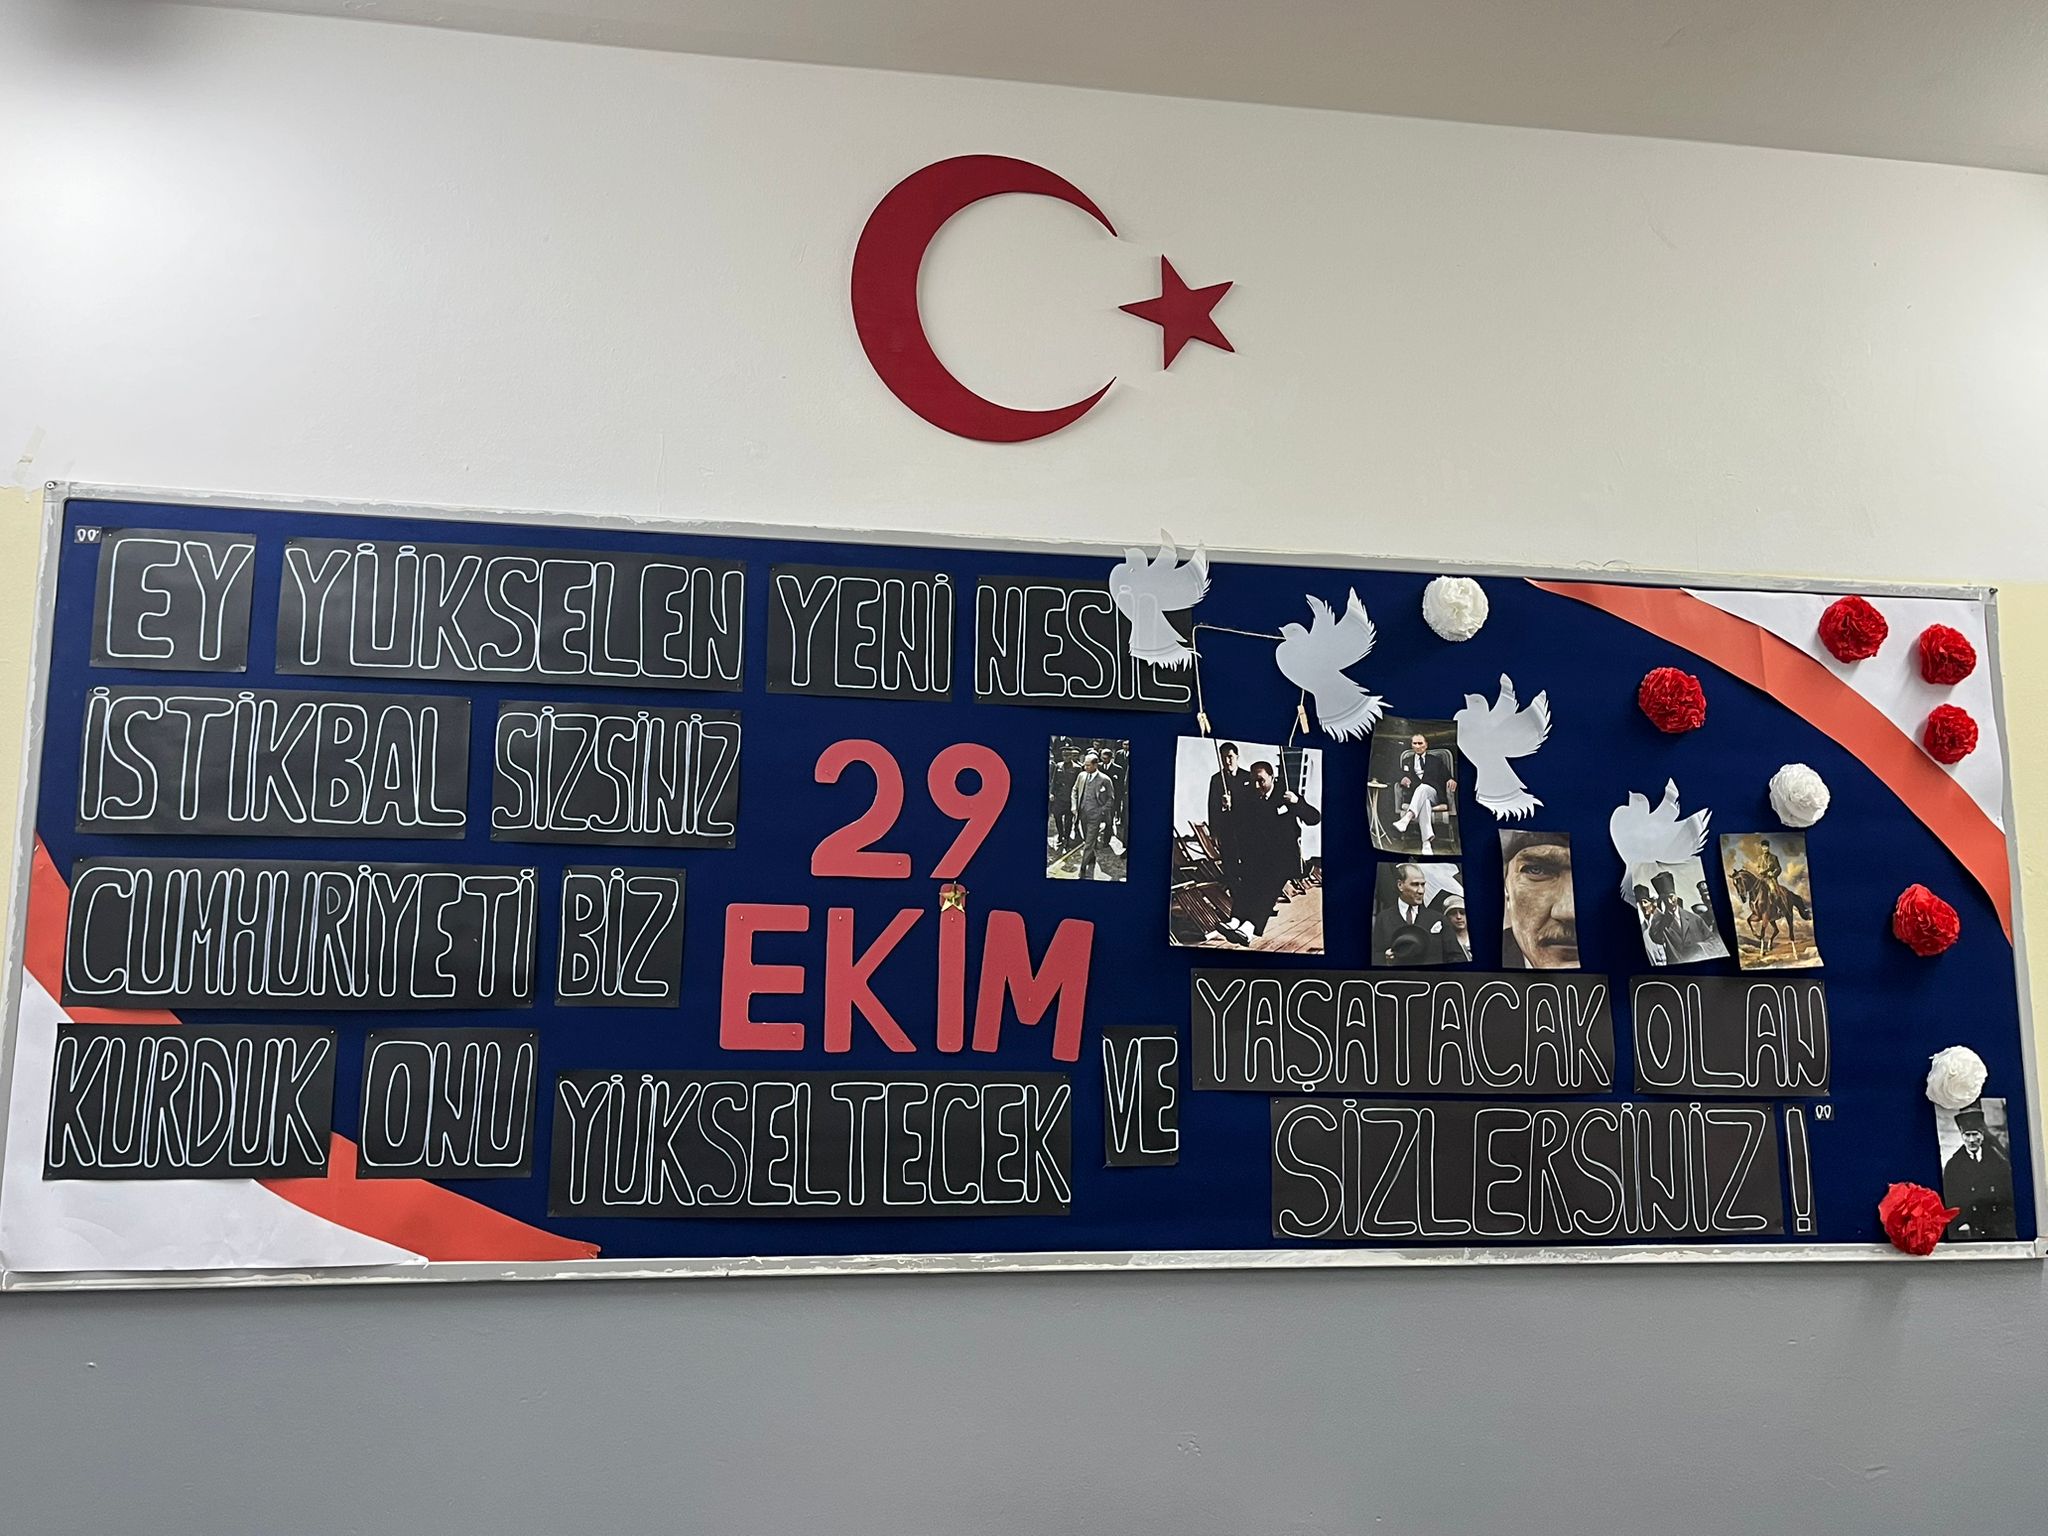 "EY YÜKSELEN YENİ NESİL
İSTİKBAL SİZSİNİZ
CUMHURİYETİ BİZ
KURDUK ONU YÜKSELTECEK VE
YAŞATACAK OLAN
SİZLERSİNİZ!"
29
EKİM